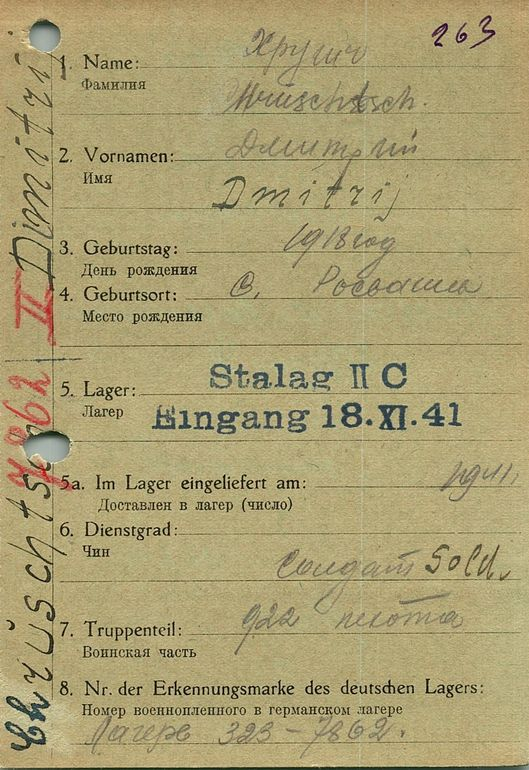 263
1. Name:
Фамилия
Хрущ
2. Vornamen:
Имя
Дмитрий
Dmitrij
3. Geburtstag:
День рождения
1918 год
4. Geburtsort:
Место рождения
с.
5. Lager:
Лагер
Stalag II C
Eingang 18.XI.41
5a. Im Lager eingeliefert am:
Доставлен в лагер (число)
6. Dienstgrad:
Чин
Солдат Sold.
7. Truppenteil:
Воинская часть
922 пехота
8. Nr. der Erkennungsmarke des deutschen Lagers:
Номер военнопленного в германском лагере
Лагерь 323-7862.
Chrüschtsch II Dimitri
7862